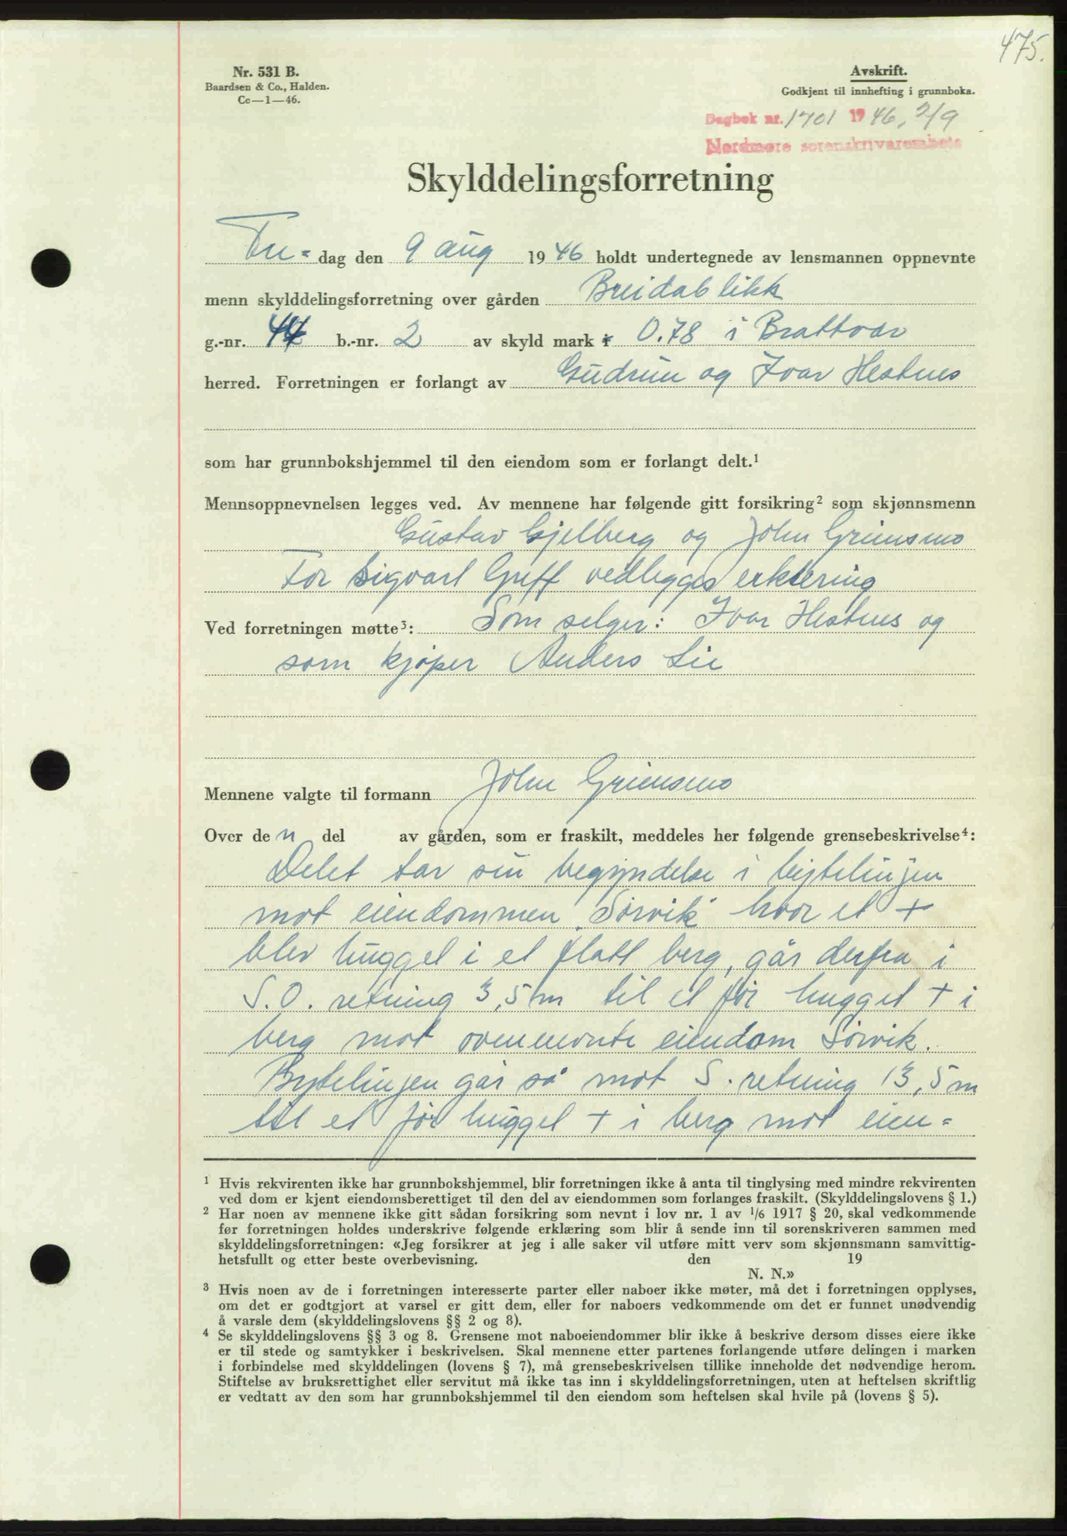 475.
Nr. 531 B.
Baardsen & Co., Halden.
Cc—1—46.
Avskrift.
Godkjent til innhefting i grunnboka.
Dagbok nr. 1701 1946, 2/9
Nordmøre sorenskriverembete
Skylddelingsforretning
Fre= dag den 9 aug 1946 holdt undertegnede av lensmannen oppnevnte
menn skylddelingsforretning over gården Breidablikk
g.-nr. 44 b.-nr. 2 av skyld mark 0.78 i Brattvær
herred. Forretningen er forlangt av Gudrun og Ivar Hestnes
som har grunnbokshjemmel til den eiendom som er forlangt delt.¹
Mennsoppnevnelsen legges ved. Av mennene har følgende gitt forsikring² som skjønnsmenn
Gustav Gjelberg og John Griensmo
For Sigvart Guff vedlegges erklæring
Ved forretningen møtte³: Som selger: Ivar Hestnes og
som kjøper Anders Lie
Mennene valgte til formann John Griensmo
Over den del av gården, som er fraskilt, meddeles her følgende grensebeskrivelse⁴:
Delet tar sin begyndelse i bytelinjen
mot eiendommen "Sørvik" hvor et +
blev hugget i et flatt berg, går derfra i
S.O. retning 3,5 m til et før hugget + i
berg mot ovennevnte eiendom Sørvik.
Bytelinjen går så mot S. retning 13,5 m
til et før hugget + i berg mot eien=
¹ Hvis rekvirenten ikke har grunnbokshjemmel, blir forretningen ikke å anta til tinglysing med mindre rekvirenten
ved dom er kjent eiendomsberettiget til den del av eiendommen som forlanges fraskilt. (Skylddelingslovens § 1.)
² Har noen av mennene ikke gitt sådan forsikring som nevnt i lov nr. 1 av ¹/6 1917 § 20, skal vedkommende
før forretningen holdes underskrive følgende erklæring som blir å sende inn til sorenskriveren sammen med
skylddelingsforretningen: «Jeg forsikrer at jeg i alle saker vil utføre mitt verv som skjønnsmann samvittig-
hetsfullt og etter beste overbevisning. den 19
N. N.»
³ Hvis noen av de i forretningen interesserte parter eller naboer ikke møter, må det i forretningen opplyses,
om det er godtgjort at varsel er gitt dem, eller for naboers vedkommende om det er funnet unødvendig
å varsle dem (skylddelingslovens §§ 2 og 8).
⁴ Se skylddelingslovens §§ 3 og 8. Grensene mot naboeiendommer blir ikke å beskrive dersom disses eiere ikke
er til stede og samtykker i beskrivelsen. Skal mennene etter partenes forlangende utføre delingen i marken
i forbindelse med skylddelingen (lovens § 7), må grensebeskrivelsen tillike inneholde det nødvendige herom.
Stiftelse av bruksrettighet eller servitut må ikke tas inn i skylddelingsforretningen, uten at heftelsen skriftlig
er vedtatt av den som har grunnbokshjemmel til den eiendom som heftelsen skal hvile på (lovens § 5).